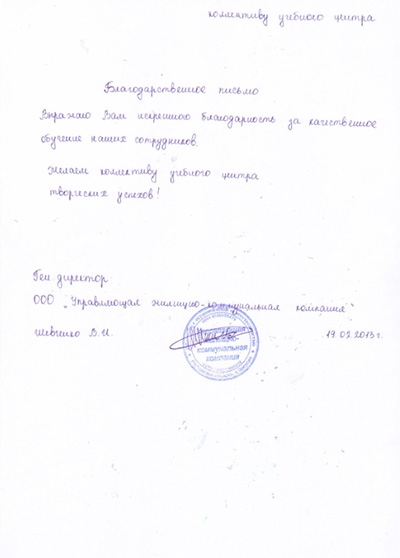 коллективу учебного центра
Благодарственное письмо
Выражаю Вам искреннюю благодарность за качественное
обучение наших сотрудников.
Желаем коллективу учебного центра
творческих успехов!
Ген. директор
ООО „Управляющая жилищно-коммунальная компания“
Шевченко В.И.
19.02.2013г.
жилищно-
коммунальная
компания